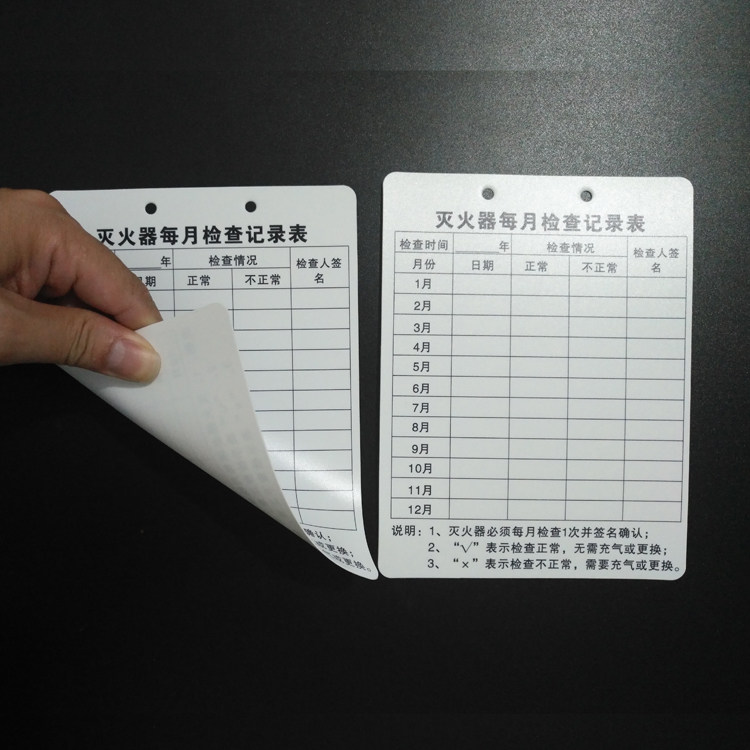 灭火器每月检查记录表
年 检查情况 检查人签名
期 正常 不正常
确认；
或更换；
或更换。
灭火器每月检查记录表
检查时间 ______年 检查情况 检查人签名
月份 日期 正常 不正常
1月
2月
3月
4月
5月
6月
7月
8月
9月
10月
11月
12月
说明：1、灭火器必须每月检查1次并签名确认；
2、“√”表示检查正常，无需充气或更换；
3、“×”表示检查不正常，需要充气或更换。